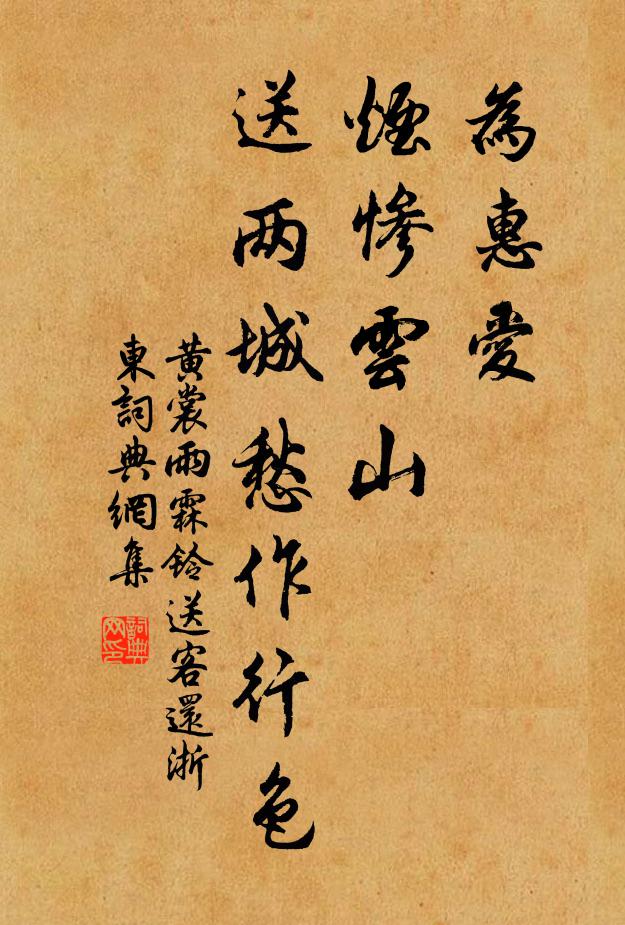 為惠愛
煙慘雲山
送两城愁作行色
黃裳雨霖鈴送客還浙
東詞典網集
詞典
网印